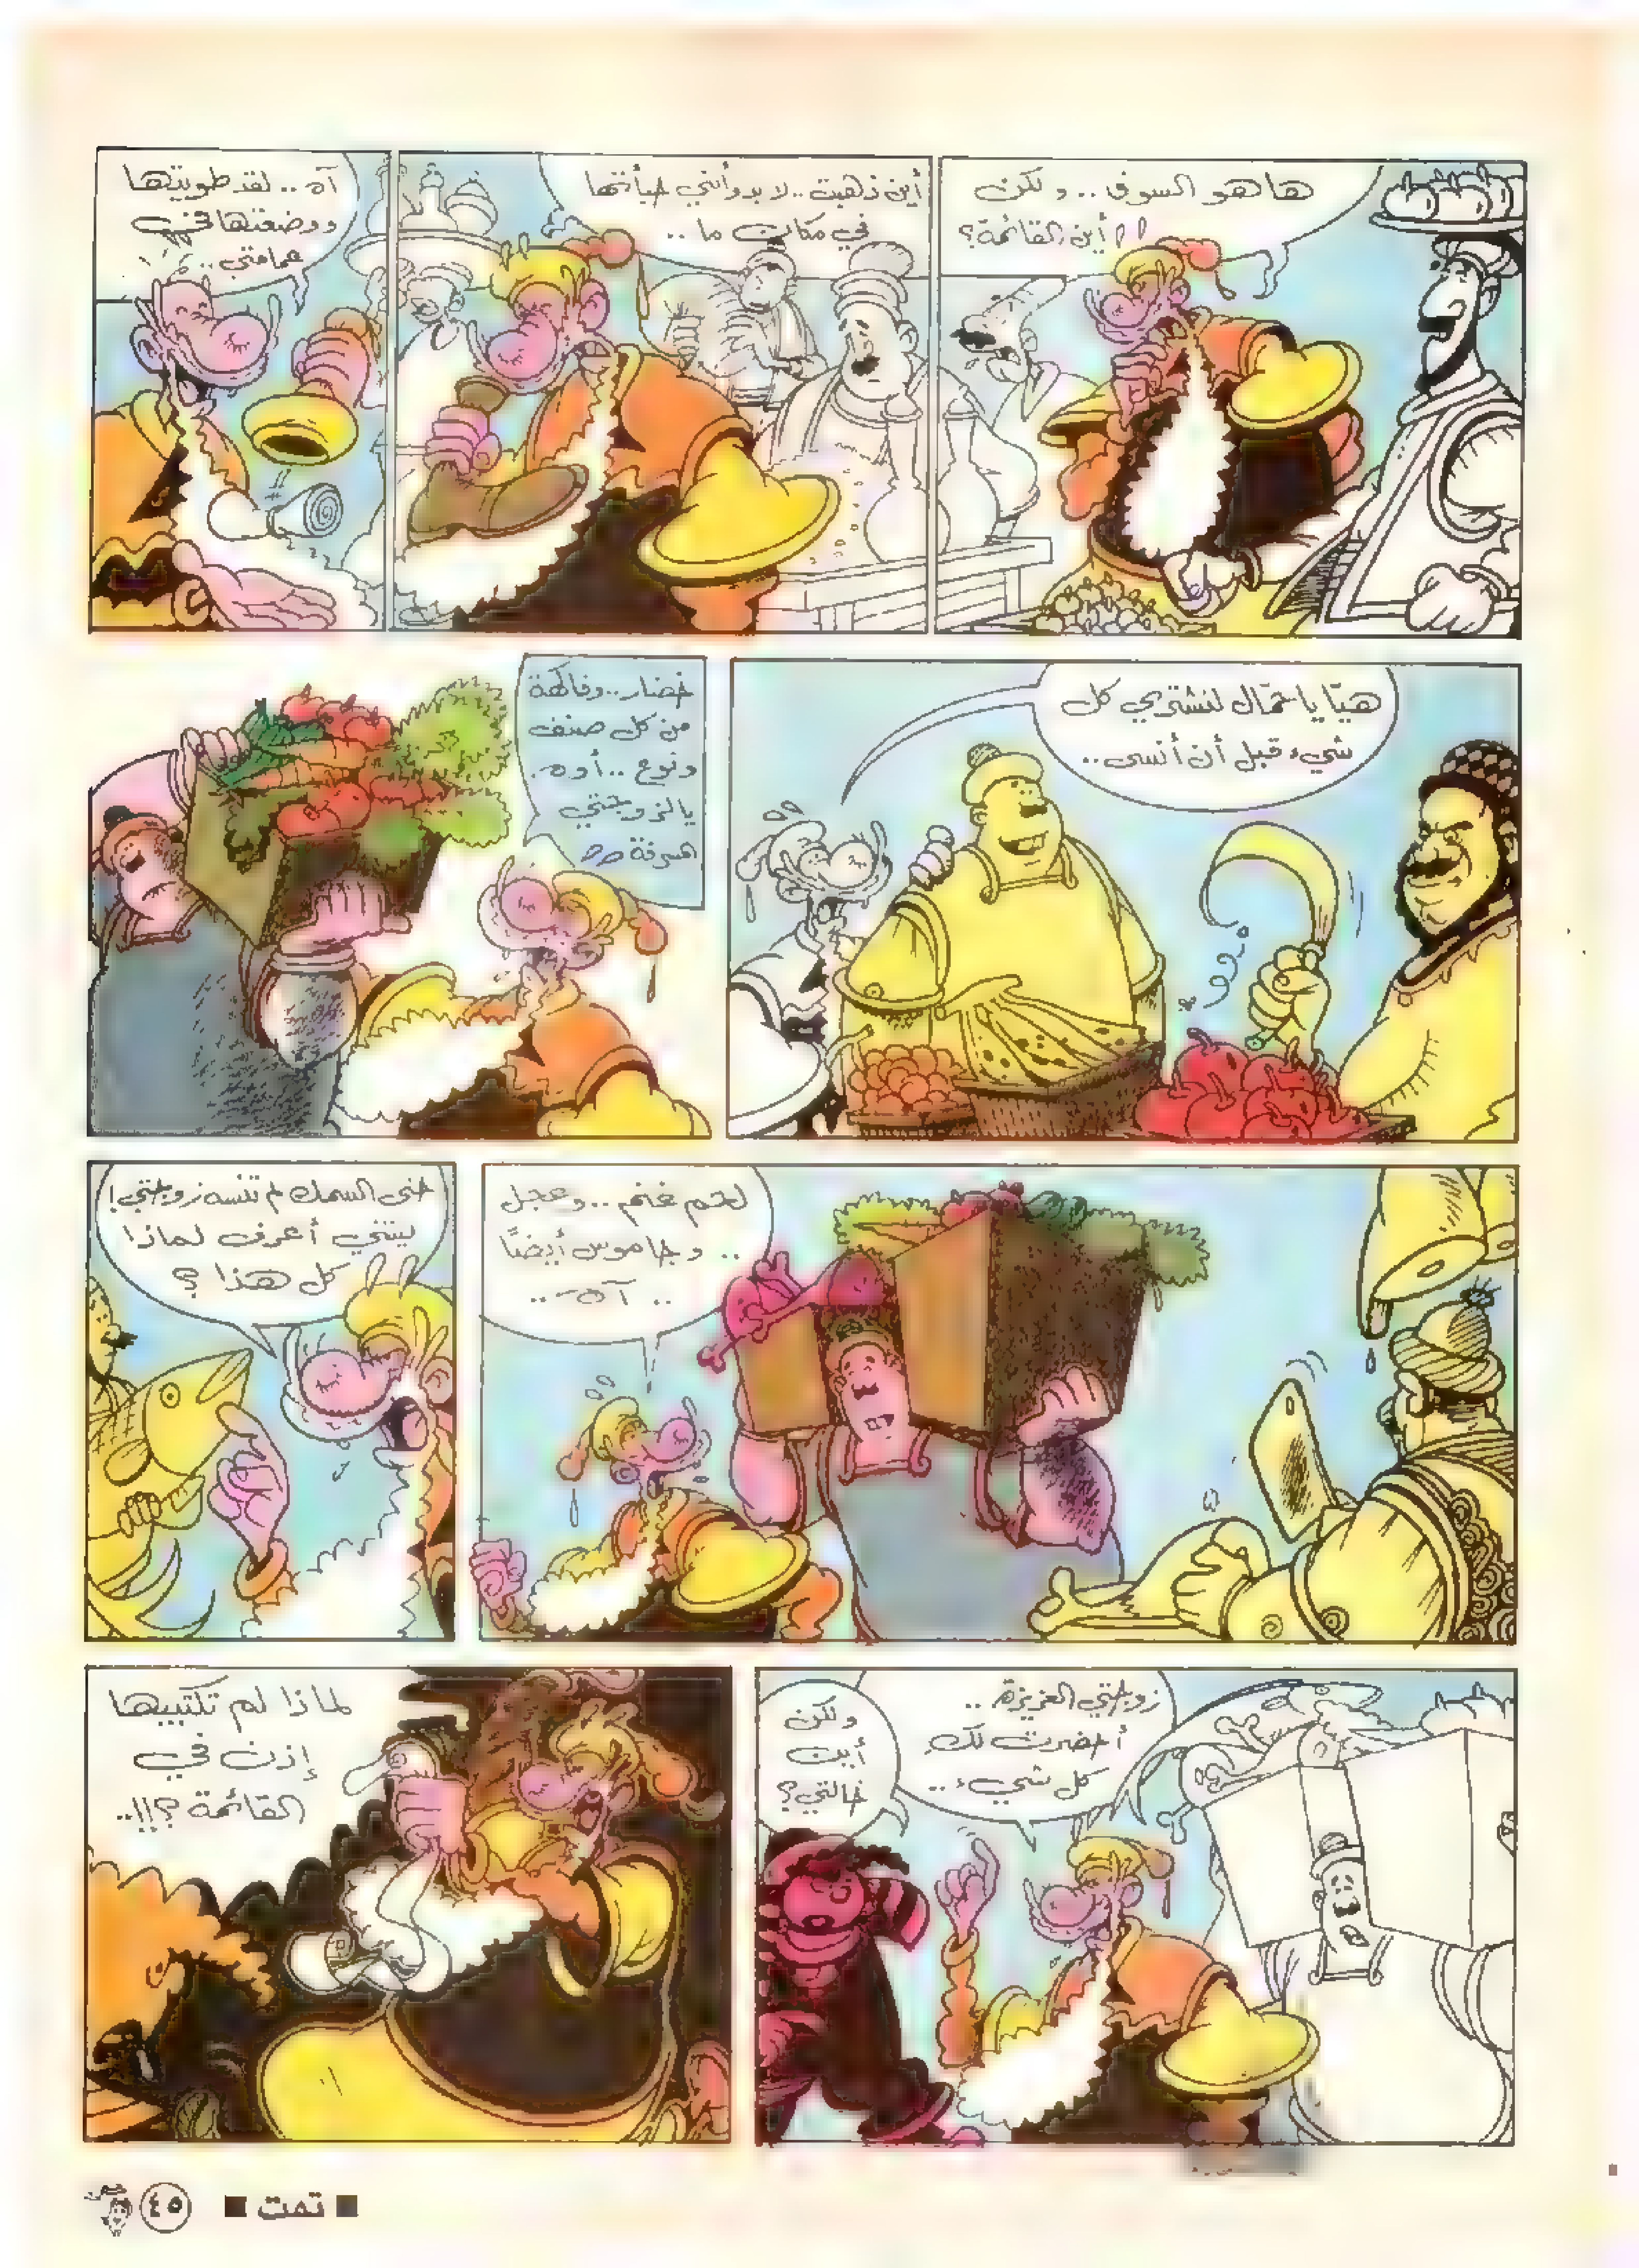 ها هو السوق .. ولكن
أين القائمة؟
أين ذهبت .. لا بد وأنني خبأتها
في مكان ما ..
آه .. لقد طويتها
ووضعتها في
عمامتي ..
هيّا يا حمّال لنشتري كل
شيء قبل أن أنسى ..
خضار .. وفاكهة
من كل صنف
ونوع .. أوه.
يا لزوجتي
المسرفة
لحم غنم .. وعجل
.. وجاموس أيضًا
.. آه ..
حتى السمك لم تنسه زوجتي!
ليتني أعرف لماذا
كل هذا ؟
زوجتي العزيزة ..
أحضرت لك
كل شيء ..
ولكن
أين
خالتي؟
لماذا لم تكتبيها
إذن في
القائمة ؟!! ..
■ تمت ■
٤٥